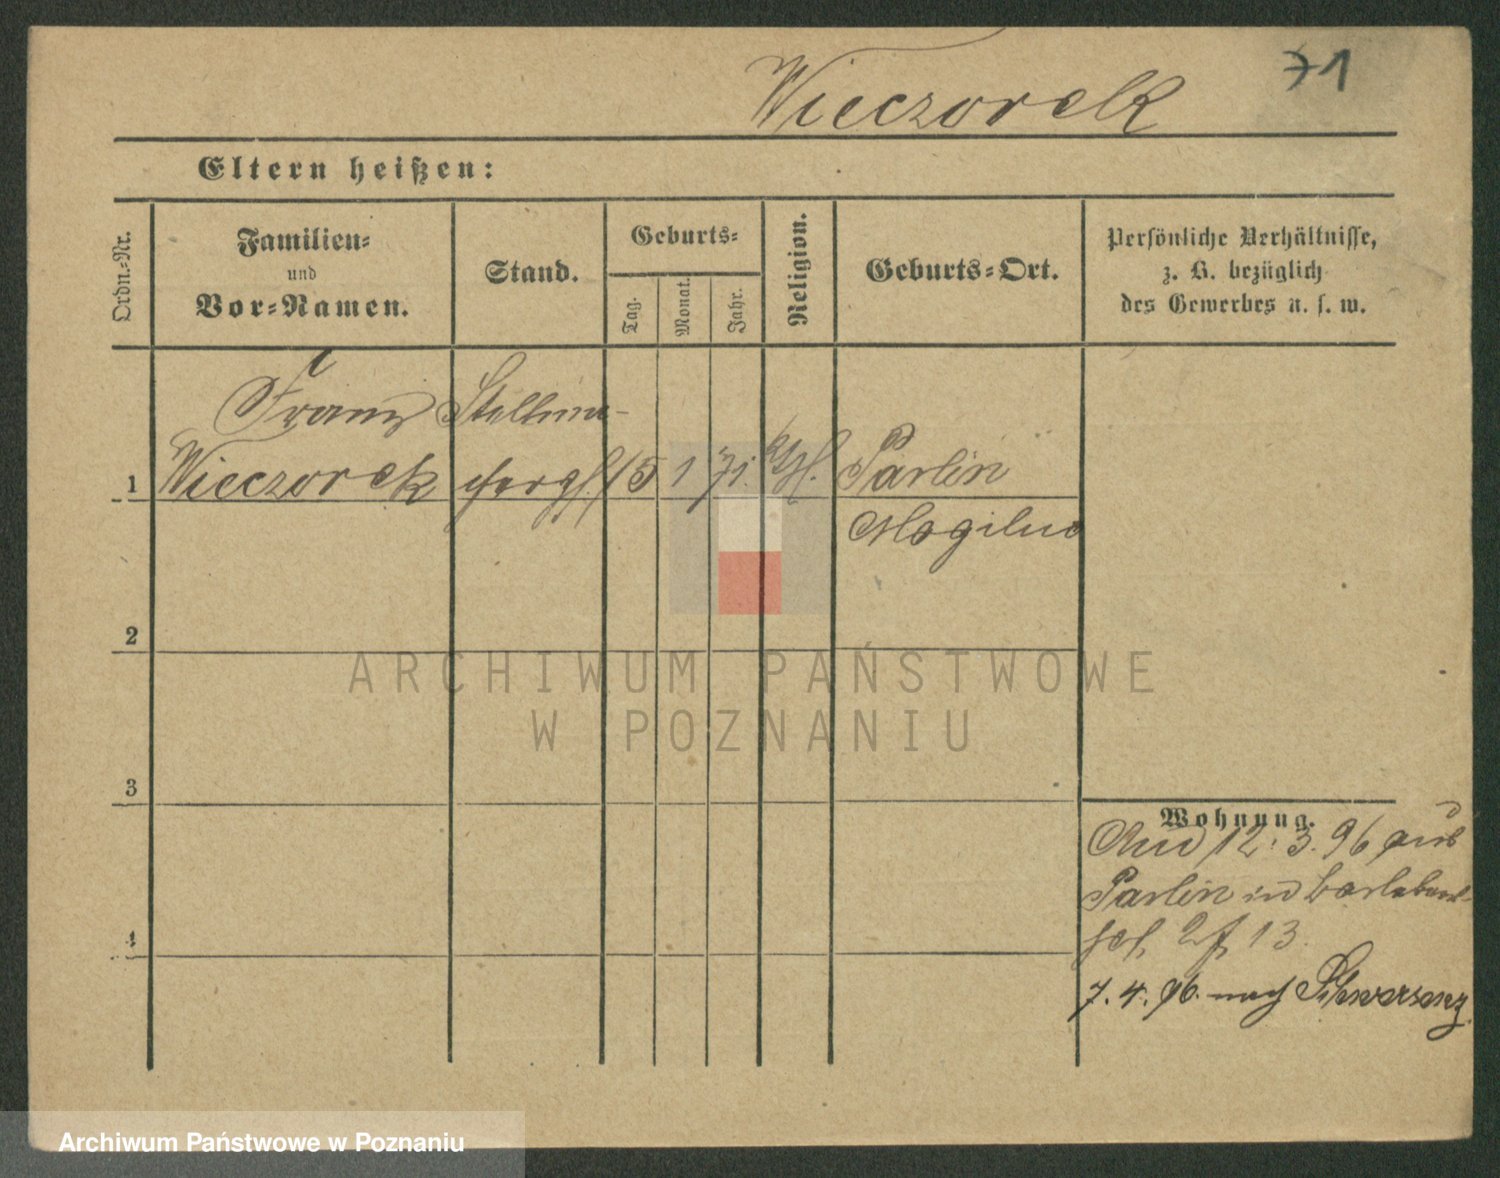 Wieczorek
71
Eltern heißen:
Ordn.-Nr.
Familien-
und
Vor-Namen.
Stand.
Geburts-
Tag.
Monat.
Jahr.
Religion.
Geburts-Ort.
Persönliche Verhältnisse,
z. B. bezüglich
des Gewerbes u. s. w.
Franz Stellma-
1 Wieczorek 15 1 71. Parlin
Mogilno
2
3
4
Wohnung.
12. 3. 96 aus
Parlin in
13.
7. 4. 96. nach Schwersenz
ARCHIWUM PAŃSTWOWE
W POZNANIU
Archiwum Państwowe w Poznaniu